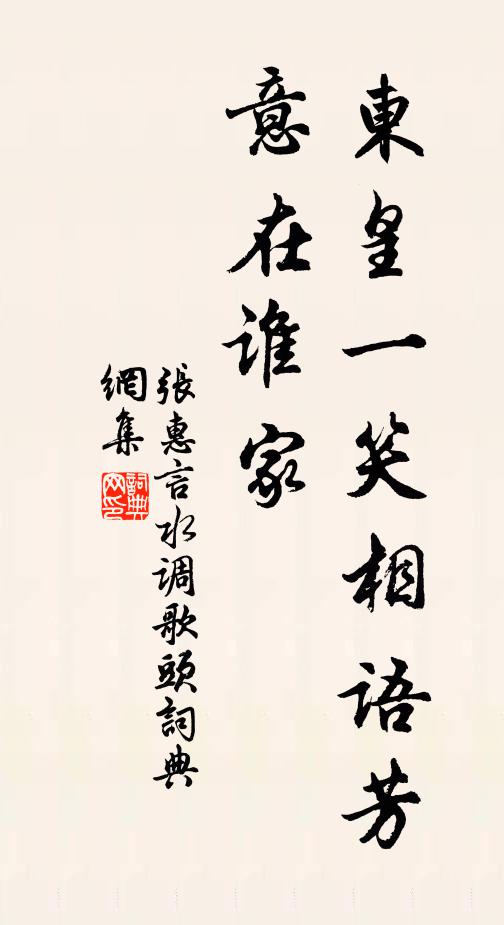 東皇一笑相语芳
意在谁家
張惠言水调歌頭詞典
網集
詞典
网印